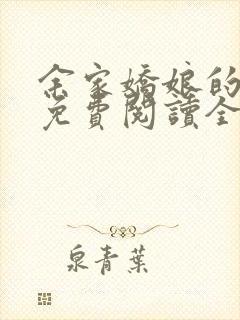 余家嬌娘的
免費閱讀全
泉青葉